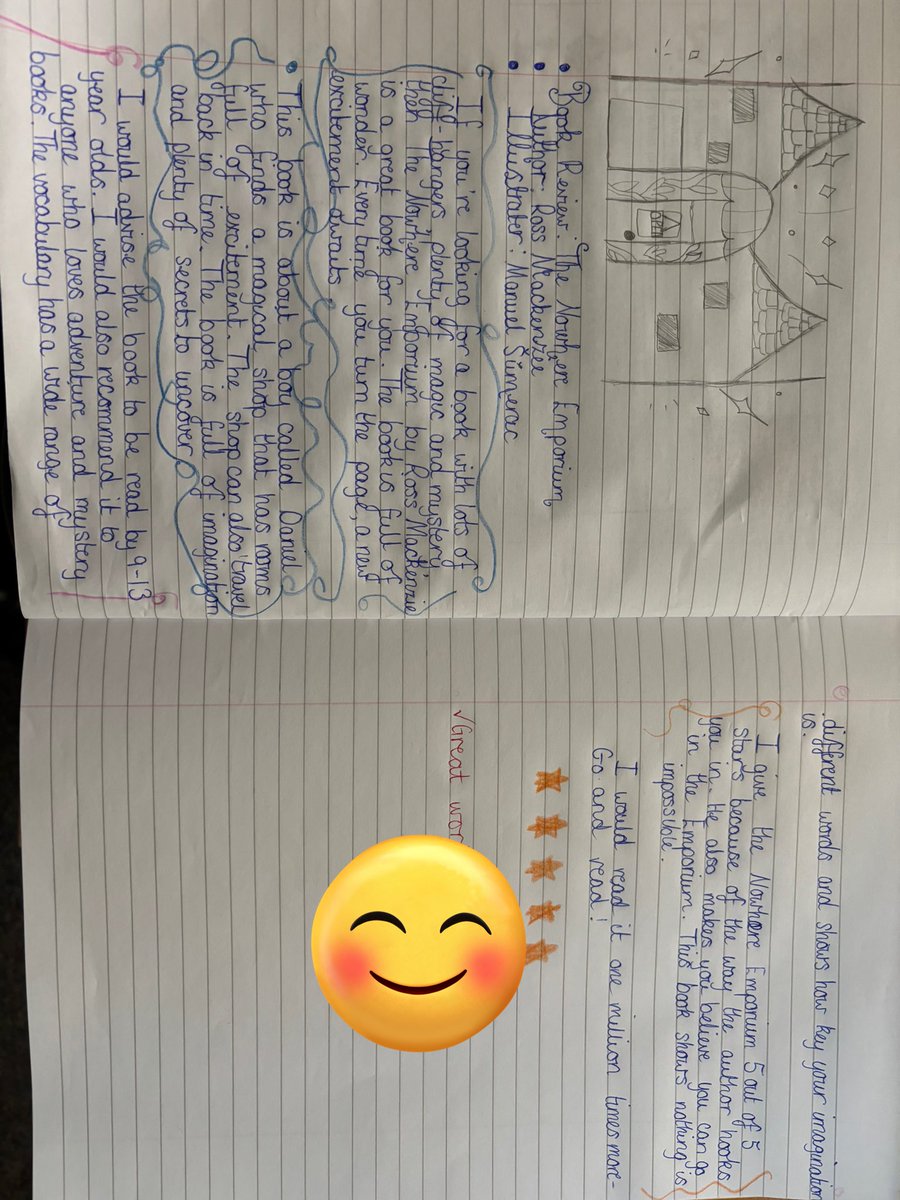 OPEN
Book Review: The Nowhere Emporium
Author: Ross Mackenzie
Illustrater: Manuel Šumerac
If you're looking for a book with lots of
cliff-hangers, plenty of magic and mystery
then The Nowhere Emporium by Ross Mackenzie
is a great book for you. The book is full of
wonder. Every time you turn the page, a new
excitement awaits.
This book is about a boy called Daniel
who finds a magical shop that has rooms
full of excitement. The shop can also travel
back in time. The book is full of imagination
and plenty of secrets to uncover.
I would advise the book to be read by 9-13
year olds. I would also recommend it to
anyone who loves adventure and mystery
books. The vocabulary has a wide range of
different words and shows how key your imagination
is.
I give the Nowhere Emporium 5 out of 5
stars because of the way the author hooks
you in. He also makes you believe you can go
in the Emporium. This book shows nothing is
impossible.
I would read it one million times more-
Go and read!
√Great